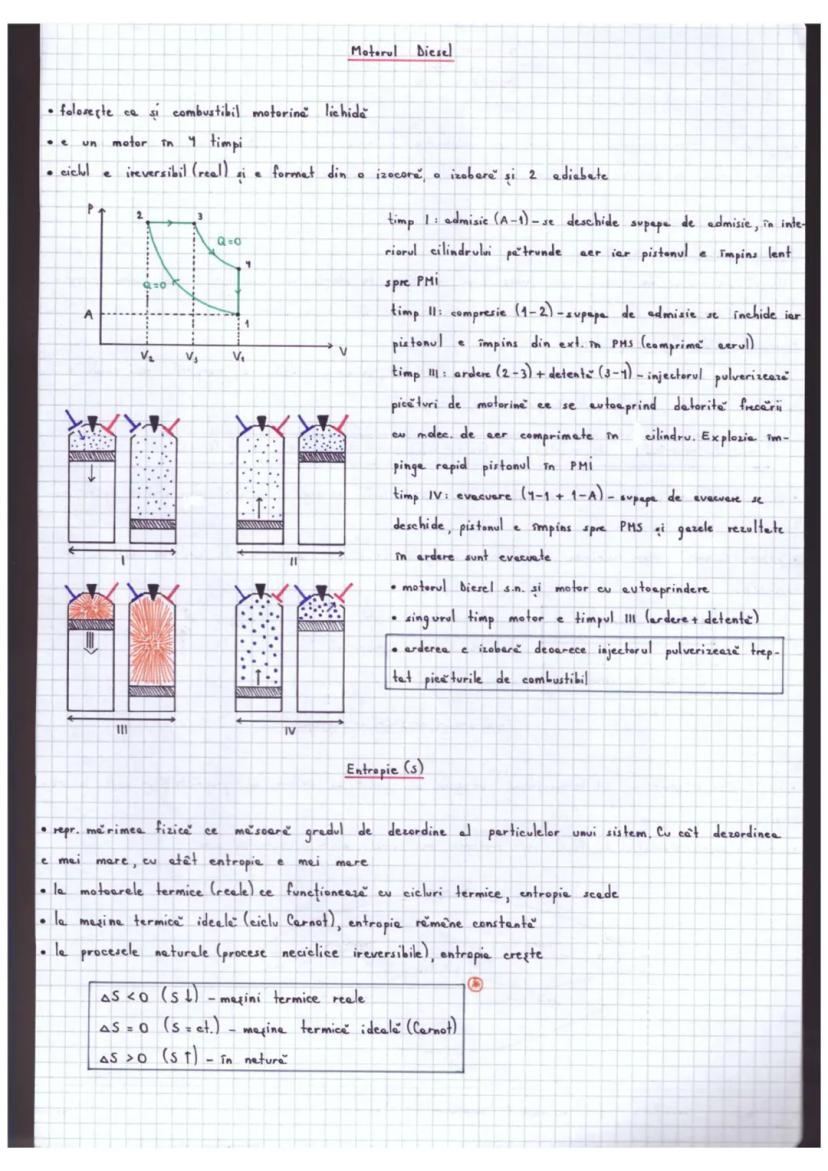 Motorul Diesel
• folosește ca și combustibil motorină lichidă
• e un motor în 4 timpi
• ciclul e ireversibil (real) și e format din o izocoră, o izobară și 2 adiabate
P
2
3
Q=0
4
Q=0
A
1
V₂
V₃
V₁
V
timp I: admisie (A-1) – se deschide supapa de admisie, în inte-
riorul cilindrului pătrunde aer iar pistonul e împins lent
spre PMI
timp II: compresie (1-2) – supapa de admisie se închide iar
pistonul e împins din ext. în PMS (comprimă aerul)
timp III: ardere (2-3) + detentă (3-4) – injectorul pulverizează
picături de motorină ce se autoaprind datorită frecării
cu molec. de aer comprimate în cilindru. Explozia îm-
pinge rapid pistonul în PMI
timp IV: evacuare (4-1 + 1-A) – supapa de evacuare se
deschide, pistonul e împins spre PMS și gazele rezultate
în ardere sunt evacuate
• motorul Diesel s.n. și motor cu autoaprindere
• singurul timp motor e timpul III (ardere + detentă)
• arderea e izobară deoarece injectorul pulverizează trep-
tat picăturile de combustibil
I
II
III
IV
Entropie (S)
• repr. mărimea fizică ce măsoară gradul de dezordine al particulelor unui sistem. Cu cât dezordinea
e mai mare, cu atât entropia e mai mare
• la motoarele termice (reale) ce funcționează cu cicluri termice, entropia scade
• la mașina termică ideală (ciclu Carnot), entropia rămâne constantă
• la procesele naturale (procese neciclice ireversibile), entropia crește
ΔS < 0 (S ↓) – mașini termice reale
ΔS = 0 (S = ct.) – mașina termică ideală (Carnot)
ΔS > 0 (S ↑) – în natură